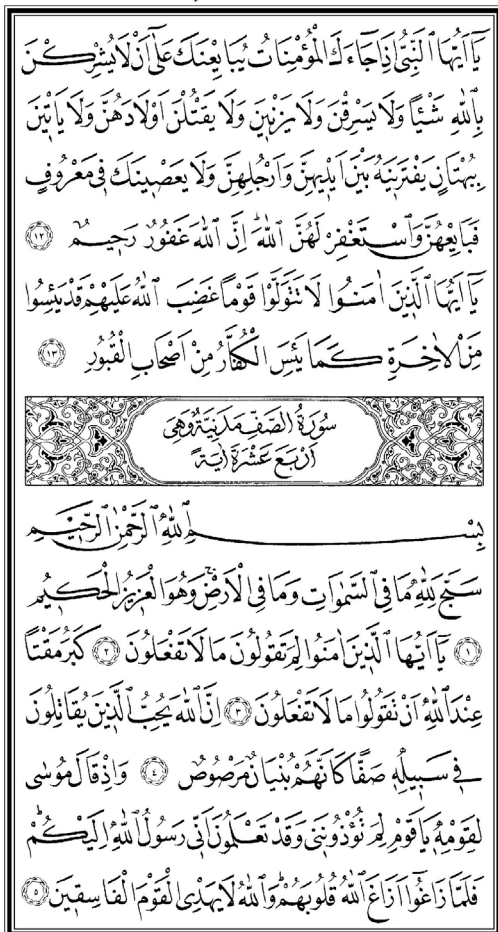 يَٓا اَيُّهَا النَّبِيُّ اِذَا جَٓاءَكَ الْمُؤْمِنَاتُ يُبَايِعْنَكَ عَلٰٓى اَنْ لَا يُشْرِكْنَ
بِاللّٰهِ شَيْـًٔا وَلَا يَسْرِقْنَ وَلَا يَزْنٖينَ وَلَا يَقْتُلْنَ اَوْلَادَهُنَّ وَلَا يَاْتٖينَ
بِبُهْتَانٍ يَفْتَرٖينَهُ بَيْنَ اَيْدٖيهِنَّ وَاَرْجُلِهِنَّ وَلَا يَعْصٖينَكَ فٖى مَعْرُوفٍ
فَبَايِعْهُنَّ وَاسْتَغْفِرْ لَهُنَّ اللّٰهَؕ اِنَّ اللّٰهَ غَفُورٌ رَحٖيمٌ ﴿١٢﴾
يَٓا اَيُّهَا الَّذٖينَ اٰمَنُوا لَا تَتَوَلَّوْا قَوْمًا غَضِبَ اللّٰهُ عَلَيْهِمْ قَدْ يَئِسُوا
مِنَ الْاٰخِرَةِ كَمَا يَئِسَ الْكُفَّارُ مِنْ اَصْحَابِ الْقُبُورِ ﴿١٣﴾
سُورَةُ الصَّفِّ مَدَنِيَّةٌ وَهِىَ
اَرْبَعَ عَشْرَةَ اٰيَةً
بِسْمِ اللّٰهِ الرَّحْمٰنِ الرَّحٖيمِ
سَبَّحَ لِلّٰهِ مَا فِى السَّمٰوَاتِ وَمَا فِى الْاَرْضِۚ وَهُوَ الْعَزٖيزُ الْحَكٖيمُ
﴿١﴾ يَٓا اَيُّهَا الَّذٖينَ اٰمَنُوا لِمَ تَقُولُونَ مَا لَا تَفْعَلُونَ ﴿٢﴾ كَبُرَ مَقْتًا
عِنْدَ اللّٰهِ اَنْ تَقُولُوا مَا لَا تَفْعَلُونَ ﴿٣﴾ اِنَّ اللّٰهَ يُحِبُّ الَّذٖينَ يُقَاتِلُونَ
فٖى سَبٖيلِهٖ صَفًّا كَاَنَّهُمْ بُنْيَانٌ مَرْصُوصٌ ﴿٤﴾ وَاِذْ قَالَ مُوسٰى
لِقَوْمِهٖ يَا قَوْمِ لِمَ تُؤْذُونَنٖى وَقَدْ تَعْلَمُونَ اَنّٖى رَسُولُ اللّٰهِ اِلَيْكُمْؕ
فَلَمَّا زَاغُٓوا اَزَاغَ اللّٰهُ قُلُوبَهُمْؕ وَاللّٰهُ لَا يَهْدِى الْقَوْمَ الْفَاسِقٖينَ ﴿٥﴾